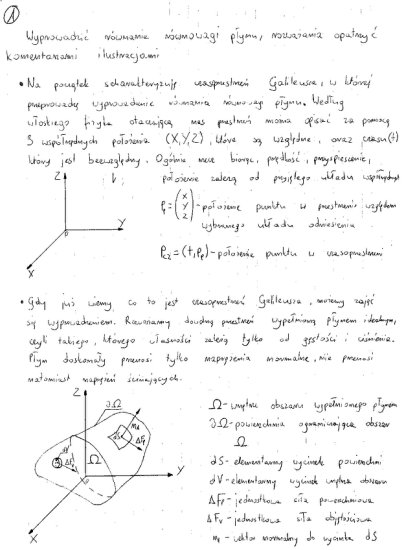 1
Wyprowadzić równanie równowagi płynu, rozważania opatrzyć
komentarzami i ilustracjami
• Na początek scharakteryzuję czasoprzestrzeń Galileusza, w której
przeprowadzę wyprowadzenie równania równowagi płynu. Według
włoskiego fizyka otaczającą nas przestrzeń można opisać za pomocą
3 współrzędnych położenia (X,Y,Z), które są względne, oraz czasu (t)
który jest bezwzględny. Ogólnie rzecz biorąc, prędkość, przyspieszenie,
położenie zależą od przyjętego układu współrzędnych
Z
Y
X
0
x
y
z
- położenie punktu w przestrzeni względem
wybranego układu odniesienia
- położenie punktu w czasoprzestrzeni
• Gdy już wiemy, co to jest czasoprzestrzeń Galileusza, możemy zająć
się wyprowadzeniem. Rozważamy dowolną przestrzeń wypełnioną płynem idealnym,
czyli takiego, którego własności zależą tylko od gęstości i ciśnienia.
Płyn doskonały przenosi tylko naprężenia normalne, nie przenosi
natomiast naprężeń ścinających.
Z
∂Ω
dS
Ω
Y
X
Ω - wnętrze obszaru wypełnionego płynem
∂Ω - powierzchnia ograniczająca obszar
Ω
dS - elementarny wycinek powierzchni
dV - elementarny wycinek wnętrza obszaru
- jednostkowa siła powierzchniowa
ΔFv - jednostkowa siła objętościowa
- wektor normalny do wycinka dS